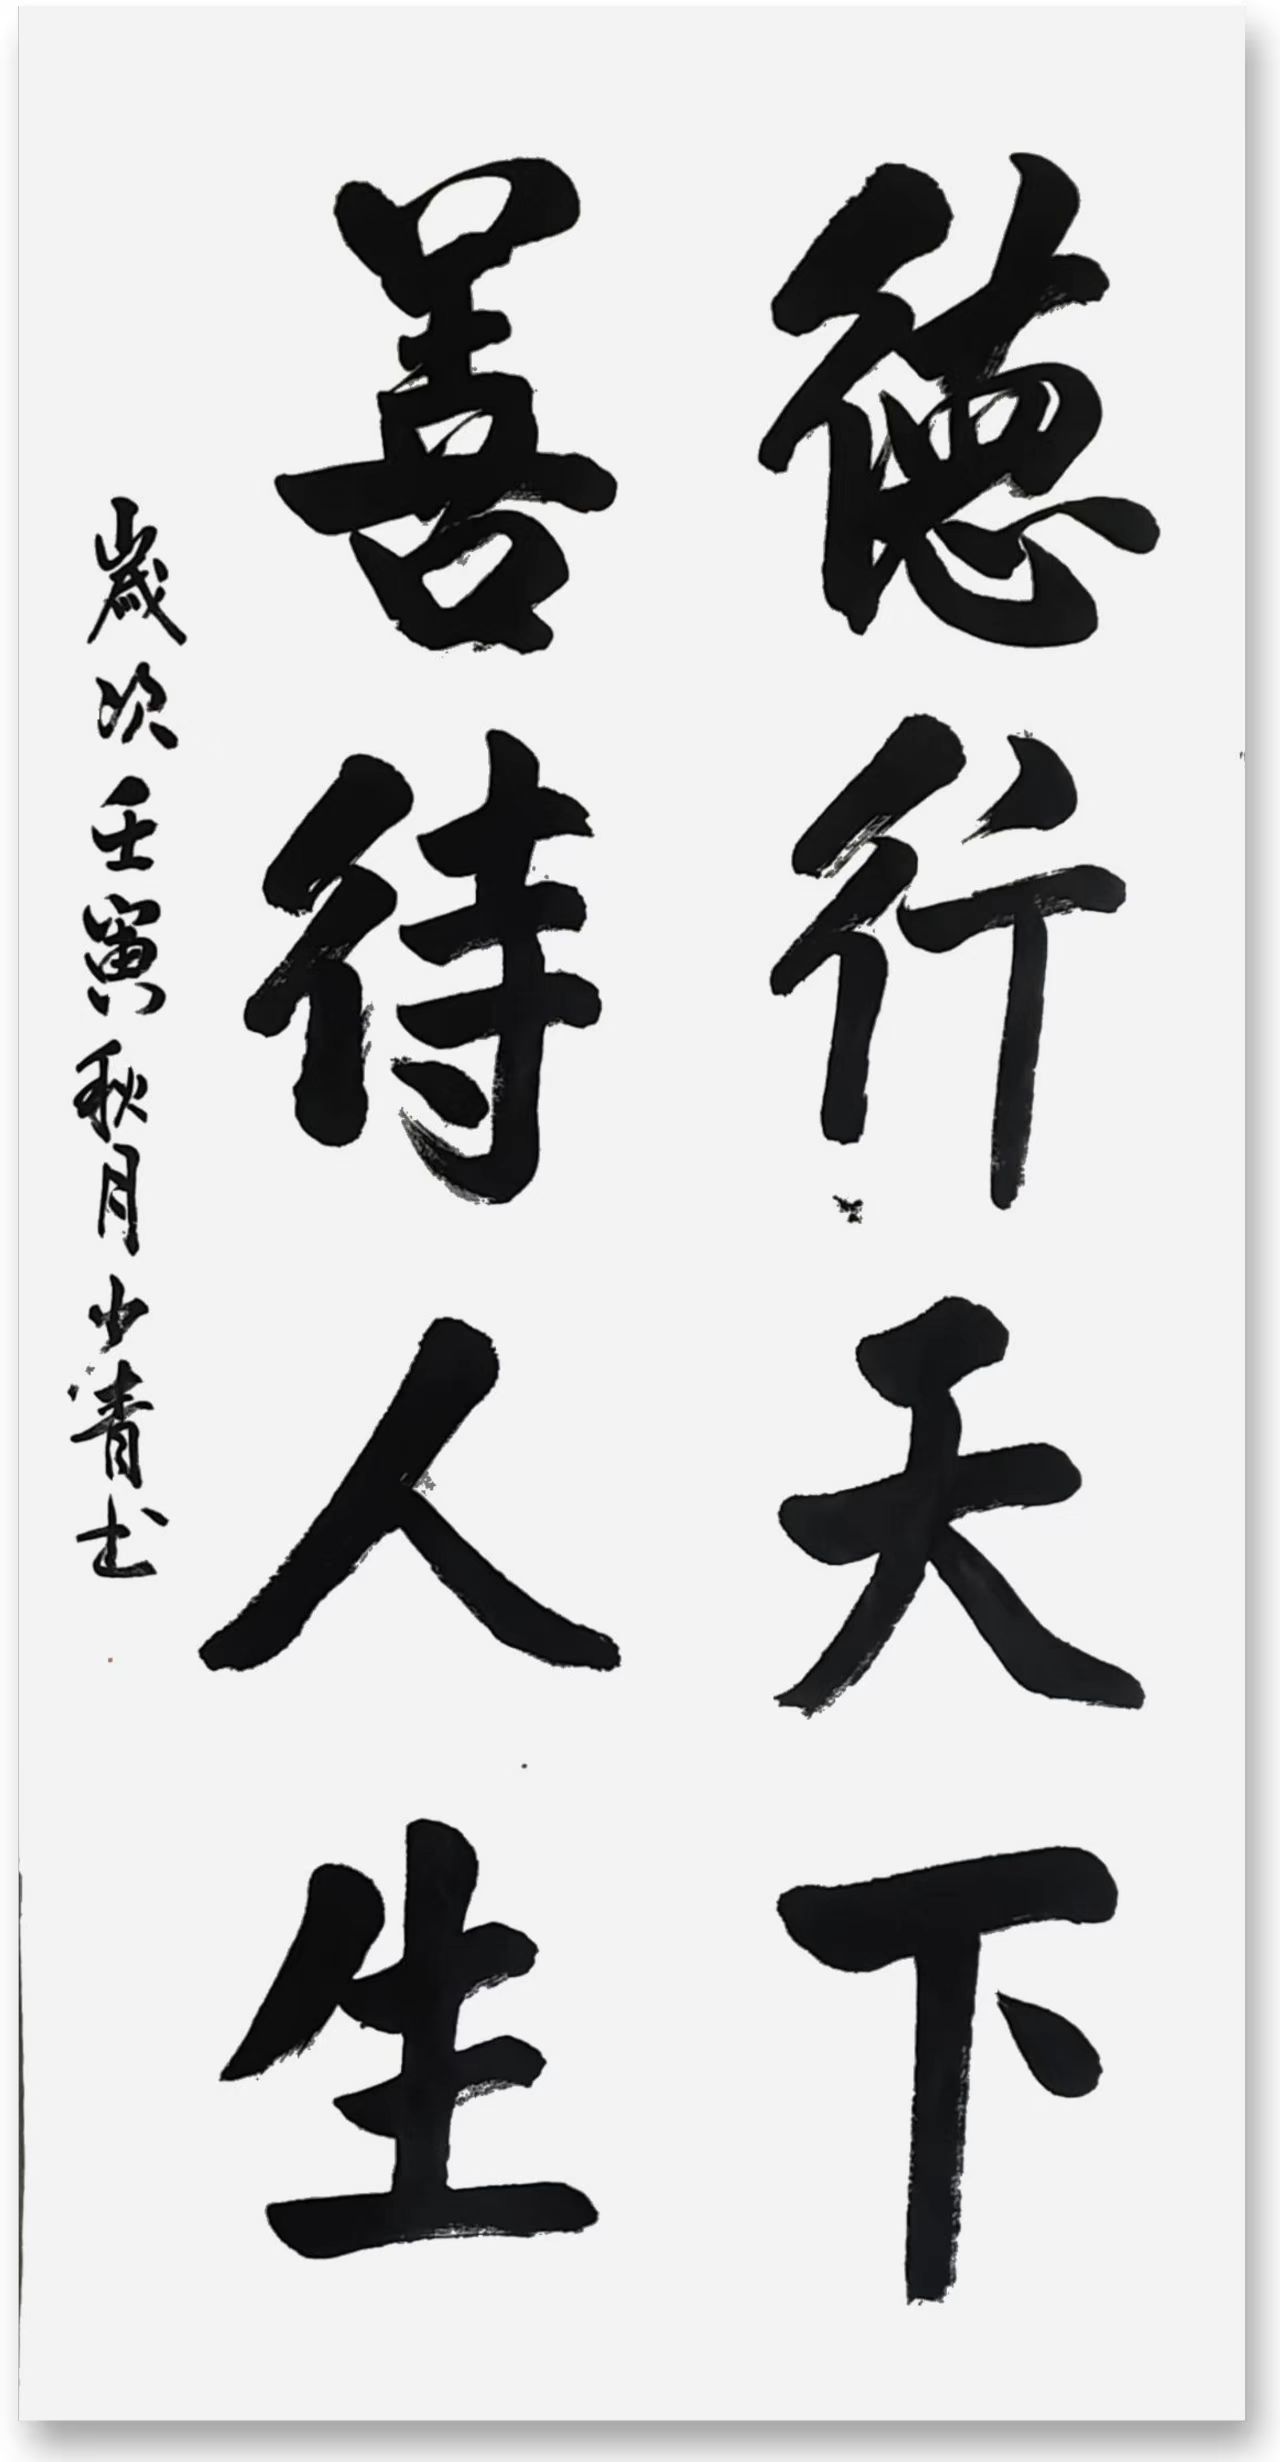 德行天下
善待人生
歲次壬寅秋月少青书